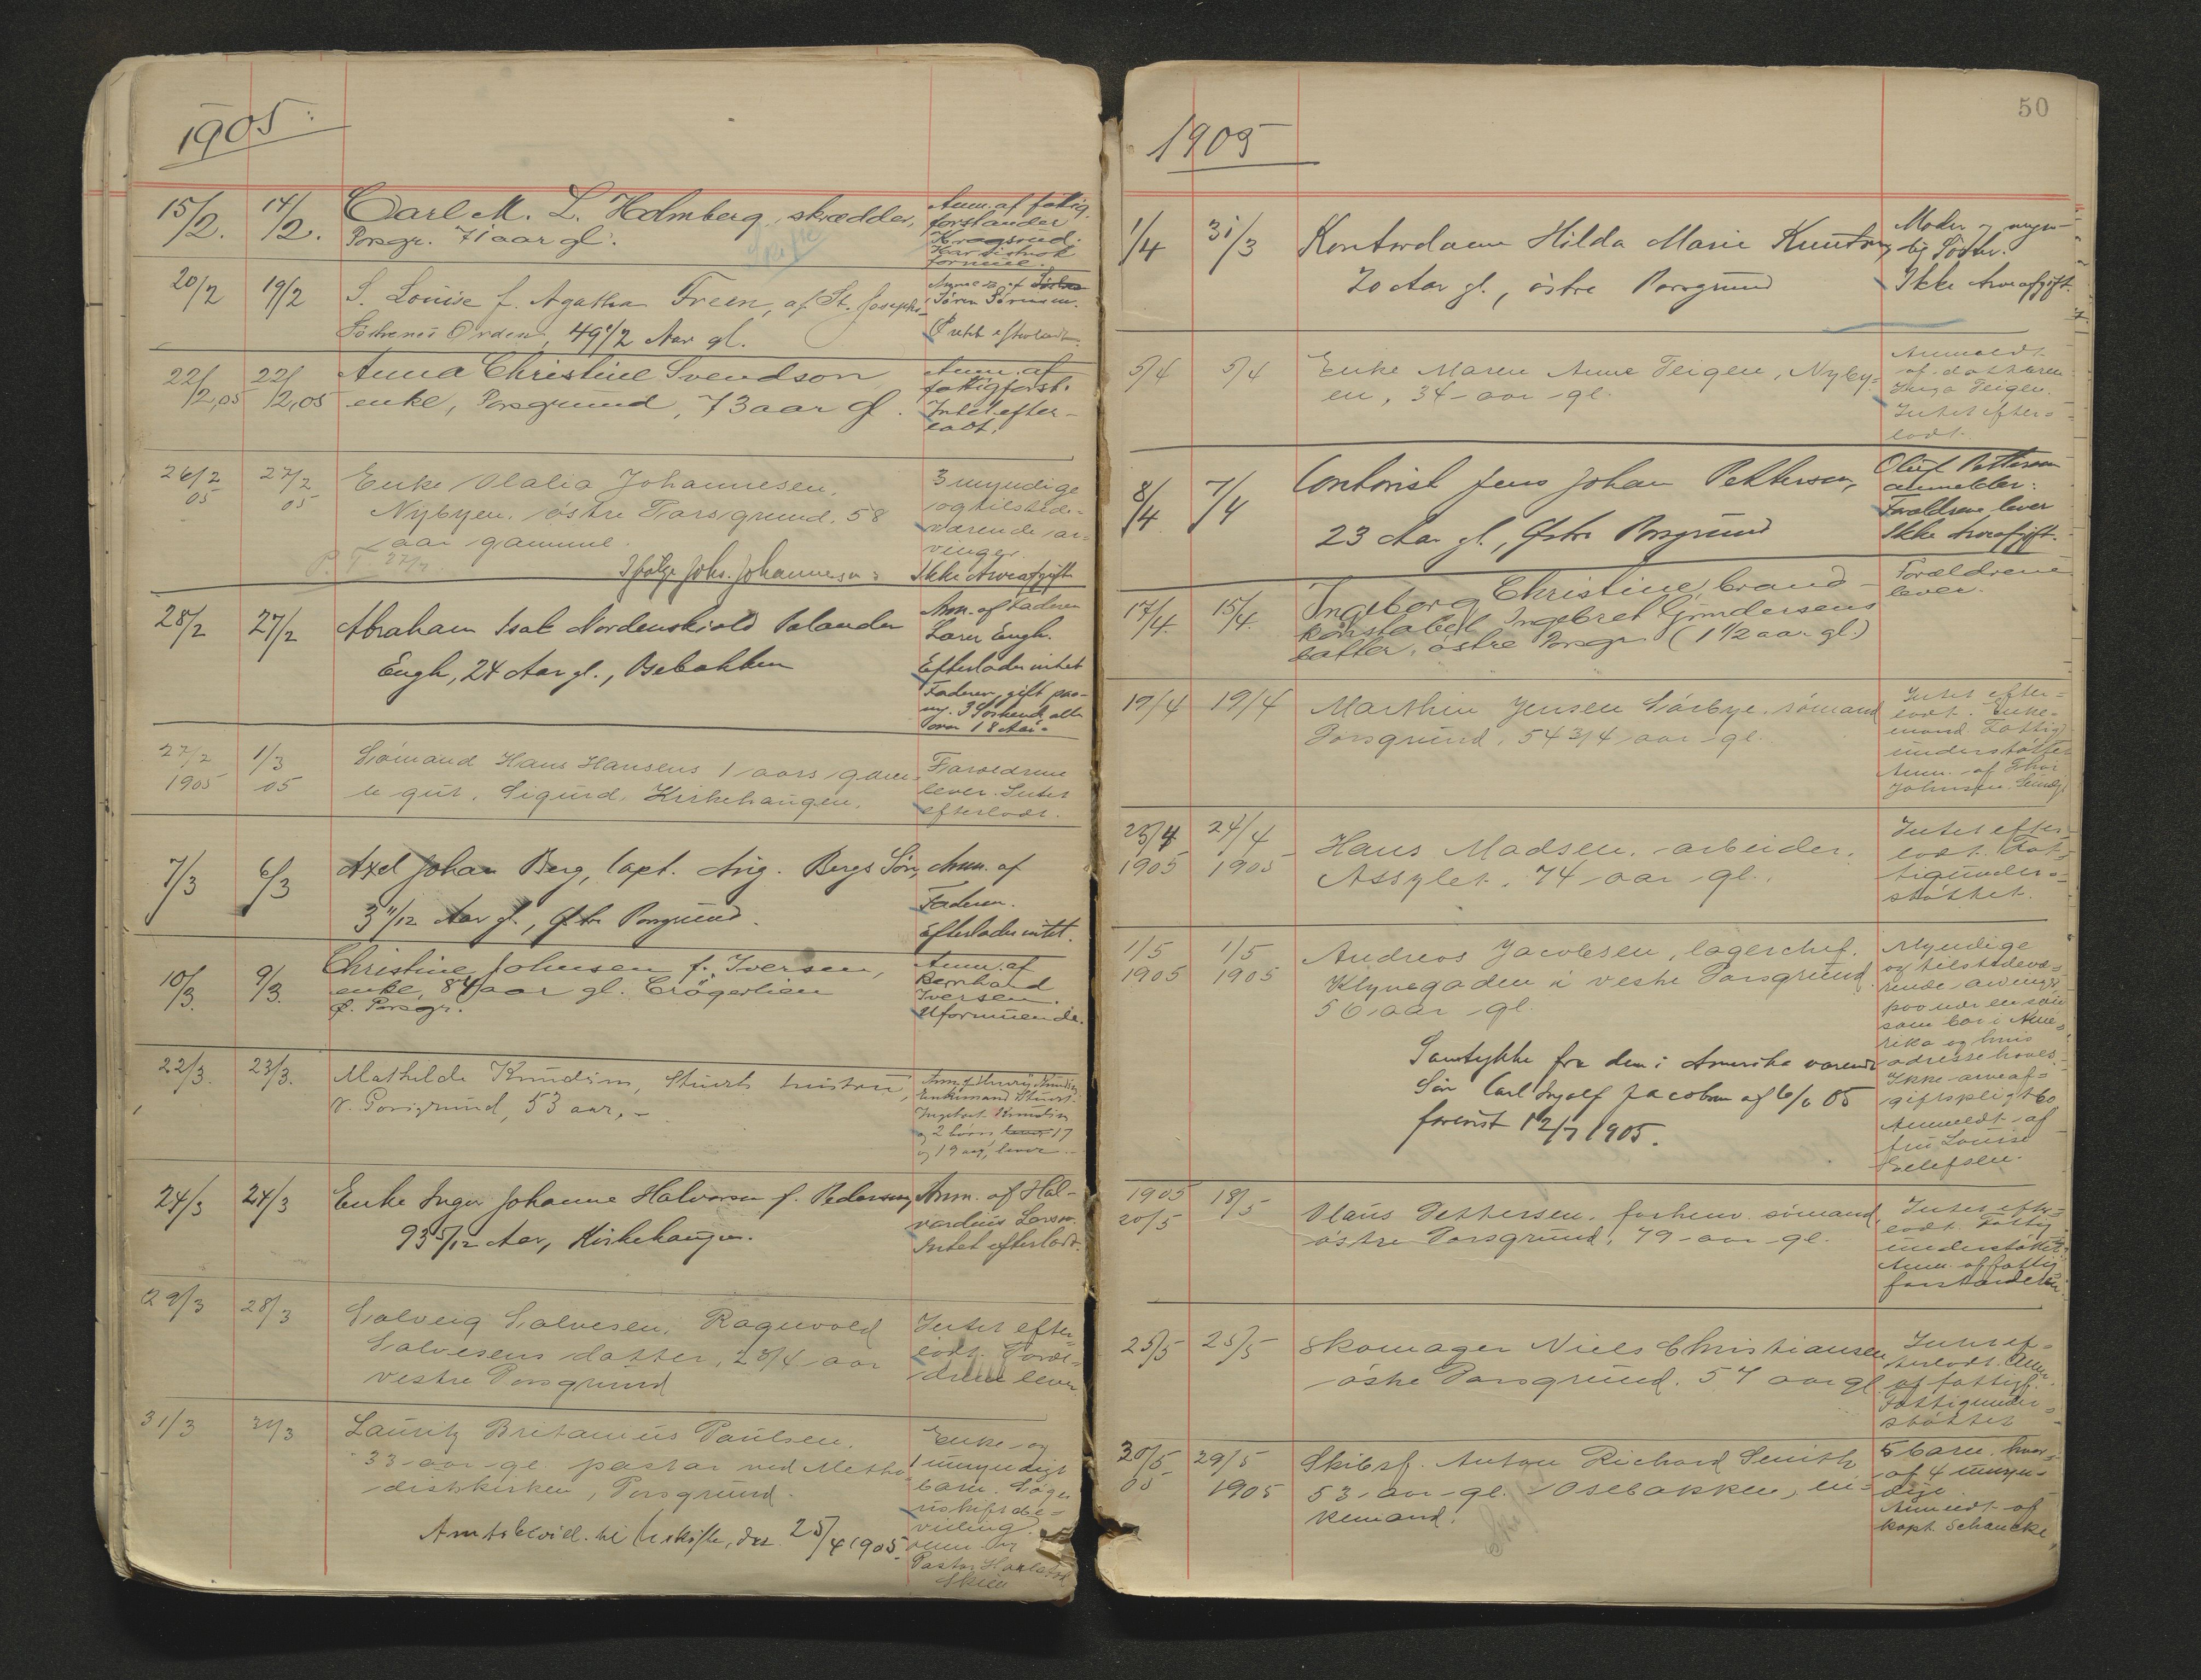 1905:
15/2. 14/2. Carl M. L. Holmberg, skrædder, Anm. af fattig-
Porsgr. 71 aar gl. forstander
Skifte Kragsrud.
Har
formue.
20/2 19/2 S. Louise f. Agatha Freen, af St. Josephs- af
Søren Sørensen.
Søstrenes Orden, 49 1/2 Aar gl. Intet efterladt.
22/2,05 22/2,05 Anna Christine Svendson Anm. af
enke, Porsgrund, 73 aar gl. fattigforst.
Intet efter-
ladt.
26/2 05 27/2 05 Enke Olalia Johannesen, 3 myndige
Nybyen, østre Porsgrund, 58 og tilstede-
aar gammel. værende ar-
vinger.
Ifølge Johs. Johannesen: Ikke Arveafgift
28/2 27/2 Abraham Isak Nordenskiold Palander Anm. af Faderen
Lars Engh.
Engh, 24 Aar gl., Osebakken Efterlader intet
Faderen, gift paa-
ny. 3 Søskende, alle
over 18 Aar.
27/2 1905 1/3 05 Sømand Hans Hansens 1 aars gam- Forældrene
le gut, Sigurd, Kirkehaugen. lever. Intet
efterladt.
7/3 6/3 Axel Johan Berg, Capt. Aug. Bergs Søn, Anm. af
3 11/12 Aar gl., Østre Porsgrund. Faderen.
Efterlader intet.
10/3. 9/3. Christine Johnsen f. Iversen, Anm. af
enke, 84 aar gl. Crögerlien Bernhard
Ø. Porsgr. Iversen.
Uformuende.
22/3. 23/3. Mathilde Knudsen, Stuerts hustru,
V. Porsgrund, 53 aar. Enkemand Stuert
Ingebart Knudsen
og 2 børn 17
og 19 aar, lever.
24/3 24/3 Enke Inger Johanne Halvorsen f. Pedersen, Anm. af Hal-
93 5/12 Aar, Kirkehaugen. vardus Larsen.
Intet efterladt.
29/3 28/3 Solveig Salvesen, Ragnvald Intet efter-
Salvesens datter, 2 3/4 aar ladt. Foræl-
vestre Porsgrund drene lever
31/3 31/3 Lauritz Britanius Paulsen, Enke og
33 aar gl. pastor ved Metho- 1 umyndigt
distkirken, Porsgrund. barn. Søger
uskiftebe-
villing.
Amtsbevill. til Uskifte, dat. 25/4 1905.
Pastor
Skien
50
1905
1/4 31/3 Kontordame Hilda Marie Knutsen, Moder og myn-
dig Søster.
20 Aar gl., østre Porsgrund Ikke Arveafgift.
5/4 5/4 Enke Maren Anne Teigen, Nyby- Anmeldt
en, 34 aar gl. af datteren
Inga Teigen.
Intet efter-
ladt.
8/4 7/4 Contorist Jens Johan Pettersen, Oluf Pettersen
anmelder:
23 Aar gl., Østre Porsgrund Forældrene lever
Ikke Arveafgift.
17/4. 15/4. Ingeborg Christine, brand- Forældrene
konstabel Ingebret Gundersens lever.
datter, østre Porsgr. (1 1/2 aar gl.)
19/4 19/4 Marthin Jensen Sørbye, sømand Intet efter-
Porsgrund, 54 3/4 aar gl. ladt. Enke-
mand. Fattig-
understøttet
Anm. af Thor
Johnsen
23/4 1905 24/4 1905 Hans Madsen, arbeider. Intet efter-
Assylet, 74 aar gl. ladt. Fat-
tigunder-
støttet.
1/5 1905 1/5 1905 Andreas Jacobsen, lagerchef. Myndige
Klynegaden i vestre Porsgrund og tilstedevæ-
56 aar gl. rende arvinger
paa nær en søn
som bor i Ame-
rika og hvis
Samtykke fra den i Amerika værende adresse haves.
Søn Carl Ingolf Jacobsen af 6/6 05 Ikke arveaf-
forevist 12/7 1905. giftspligt 60
Anmeldt af
fru Louise
1905 20/5 18/5 Olaus Pettersen, forhenv. sømand, Intet efter-
østre Porsgrund, 79 aar gl. ladt. Fattig-
understøttet.
Anm. af fattig-
forstanderen.
25/5 25/5 Skomager Niels Christiansen Intet ef-
østre Porsgrund. 57 aar gl. terladt. Anm.
af fattigf.
Fattigunder-
støttet
30/5 05 29/5 1905 Skibsf. Anton Richard Smith 5 barn, hvor-
53 aar gl. Osebakken, en- af 4 umyn-
kemand. dige
Skifte Anmeldt af
kapt. Schancke